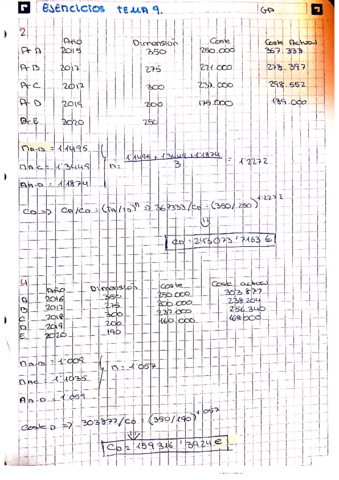 EJERCICIOS TEMA 9.
2.
Año Dimensión Coste Coste Actual
A-A 2015 350 250.000 367.333
A-B 2017 275 271.000 278.397
A-C 2017 300 237.000 298.552
A-D 2019 200 175.000 189.000
A-E 2020 250
nA-B = 1'1495
nAC = 1'3449 n = 1'1495 + 1'3449 + 1'1874 / 3 = 1'2272
nA-D = 1'1874
CD => CA/CD = (TA/TD)^n => 367333/CD = (350/250)^1'2272
CD = 243073'7163 €
4.
Año Dimensión Coste Coste actual
A 2016 350 250.000 303.877
B 2017 275 200.000 238.204
C 2018 300 237.000 256.340
D 2019 200 160.000 168.000
E 2020 190
nA-B = 1'009
nAC = 1'1035 n = 1'057
nA-D = 1'059
Coste D => 303877/CD = (350/190)^1'057
CD = 159316'3924 €